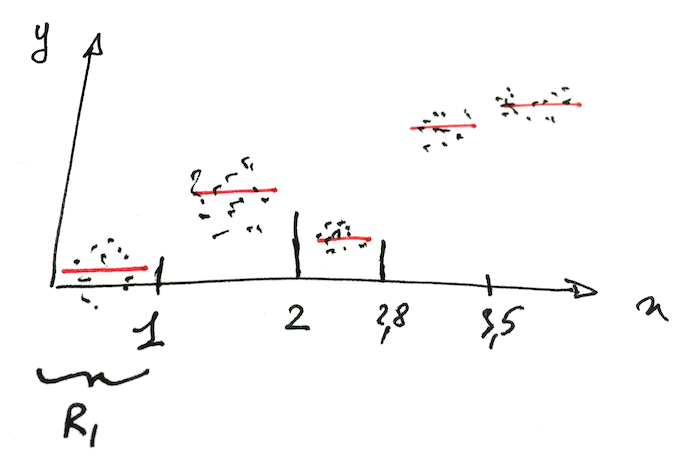 y
1 2 2,8 3,5 x
R1